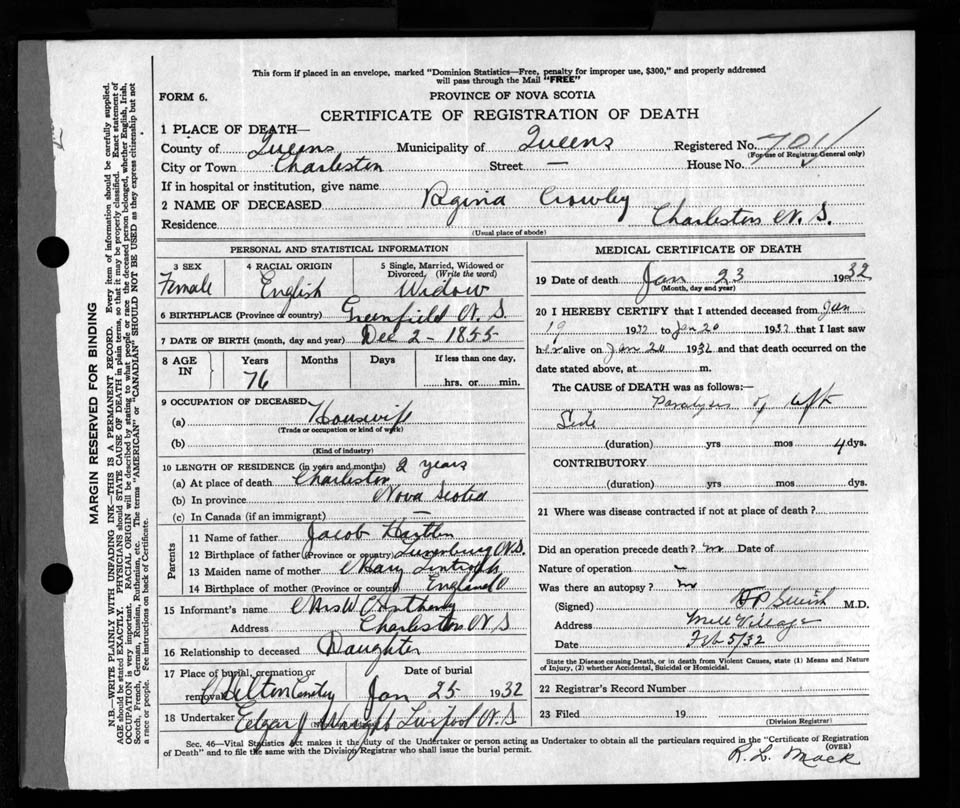 This form if placed in an envelope, marked "Dominion Statistics—Free, penalty for improper use, $300," and properly addressed
will pass through the Mail "FREE"
FORM 6.
PROVINCE OF NOVA SCOTIA
CERTIFICATE OF REGISTRATION OF DEATH
1 PLACE OF DEATH—
County of Queens Municipality of Queens Registered No.
(For use of Registrar General only)
City or Town Charleston Street — House No.
If in hospital or institution, give name
2 NAME OF DECEASED Regina Crowley
Residence Charleston N. S.
(Usual place of abode)
PERSONAL AND STATISTICAL INFORMATION
3 SEX 4 RACIAL ORIGIN 5 Single, Married, Widowed or
Divorced, (Write the word)
Female English Widow
6 BIRTHPLACE (Province or country) Greenfield N. S.
7 DATE OF BIRTH (month, day and year) Dec 2 - 1855
8 AGE IN Years Months Days If less than one day,
76 hrs. or min.
9 OCCUPATION OF DECEASED
(a) Housewife
(Trade or occupation or kind of work)
(b)
(Kind of industry)
10 LENGTH OF RESIDENCE (in years and months) 2 years
(a) At place of death Charleston
(b) In province Nova Scotia
(c) In Canada (if an immigrant) —
Parents
11 Name of father Jacob
12 Birthplace of father (Province or country) Lunenburg N.S.
13 Maiden name of mother Mary
14 Birthplace of mother (Province or country) England
15 Informant's name Mrs W Anthony
Address Charleston N S
16 Relationship to deceased Daughter
17 Place of burial, cremation or Date of burial
removal Cemetery Jan 25 1932
18 Undertaker Edgar J Wright Liverpool N. S
MEDICAL CERTIFICATE OF DEATH
19 Date of death Jan 23 1932
(Month, day and year)
20 I HEREBY CERTIFY that I attended deceased from Jan
19 1932 to Jan 20 1932 that I last saw
her alive on Jan 20 1932 and that death occurred on the
date stated above, at m.
The CAUSE of DEATH was as follows:—
Paralysis of left
Side
(duration) yrs mos 4 dys.
CONTRIBUTORY
(duration) yrs mos dys.
21 Where was disease contracted if not at place of death?
Did an operation precede death? no Date of
Nature of operation
Was there an autopsy? no
(Signed) Smith M.D.
Address Mill Village
Date Feb 5/32
State the Disease causing Death, or in death from Violent Causes, state (1) Means and Nature
of Injury, (2) whether Accidental, Suicidal or Homicidal.
22 Registrar's Record Number
23 Filed 19
(Division Registrar)
Sec. 46—Vital Statistics Act makes it the duty of the Undertaker or person acting as Undertaker to obtain all the particulars required in the "Certificate of Registration
of Death" and to file the same with the Division Registrar who shall issue the burial permit. (OVER)
R. L. Mack
MARGIN RESERVED FOR BINDING
N.B.—WRITE PLAINLY WITH UNFADING INK—THIS IS A PERMANENT RECORD. Every item of information should be carefully supplied.
AGE should be stated EXACTLY. PHYSICIANS should STATE CAUSE OF DEATH in plain terms, so that it may be properly classified. Exact statement of
OCCUPATION is very important. RACIAL ORIGIN will be described by stating to what people or race the deceased person belonged, whether English, Irish,
Scotch, French, German, Russian, Ruthenian, etc. The terms "AMERICAN" or "CANADIAN" SHOULD NOT BE USED as they express citizenship but not
a race or people. See instructions on back of Certificate.